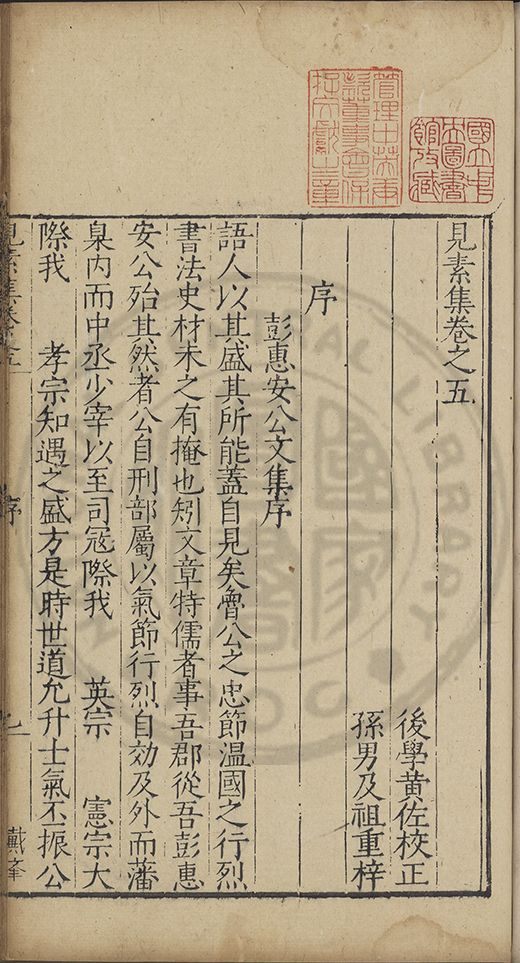 見素集卷之五
後學黃佐校正
孫男及祖重梓
序
彭惠安公文集序
語人以其盛其所能蓋自見矣魯公之忠節温國之行烈
書法史材未之有掩也矧文章特儒者事吾郡從吾彭惠
安公殆其然者公自刑部屬以氣節行烈自効及外而藩
臬内而中丞少宰以至司寇際我 英宗 憲宗大
際我 孝宗知遇之盛方是時世道允升士氣丕振公
見素集卷之五
序
一
戴奎
國立中央圖書館收藏
管理中英庚款董事會保存文獻之章